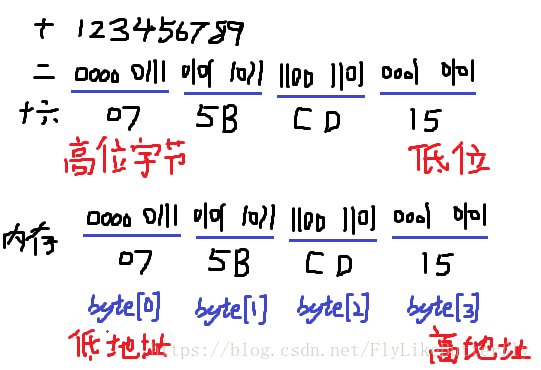 十 123456789
二 0000 0111 0101 1011 1100 1101 0001 0101
十六 07 5B CD 15
高位字节 低位
0000 0111 0101 1011 1100 1101 0001 0101
内存
07 5B CD 15
byte[0] byte[1] byte[2] byte[3]
低地址 高地址
https://blog.csdn.net/FlyLike